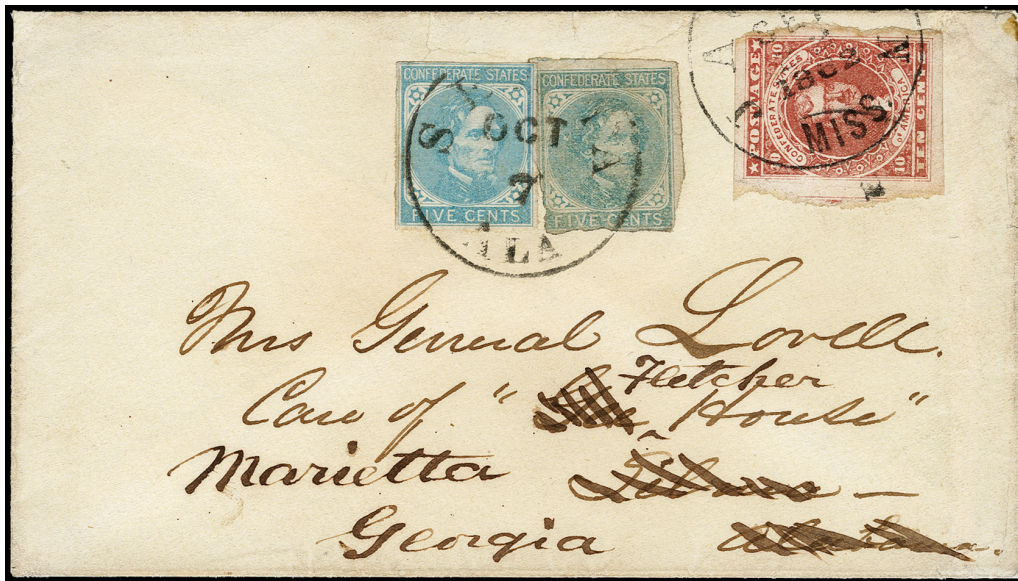 CONFEDERATE STATES
FIVE CENTS
CONFEDERATE STATES
FIVE CENTS
S A
OCT
7
ALA
POSTAGE
CONFEDERATE STATES
OF AMERICA
TEN CENTS
10 10
10
1862
MISS.
Mrs General Lovell.
Care of "Fletcher House"
Marietta
Georgia